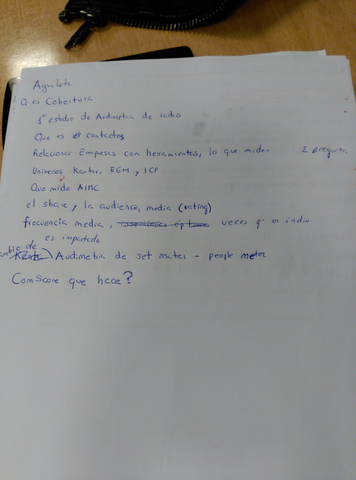 Q es Cobertura
1º estudio de Audimetria de radio
Que es el contactos
Relaciones Empresas con herramientas, lo que miden 2 preguntas
Universos Kantar, EGM y ICP
Que mide AIMC
el share y la audiencia media (rating)
frecuencia media, veces q un indiv
es impactado
de
Audimetria de set mater - people meter
ComScore que hace?